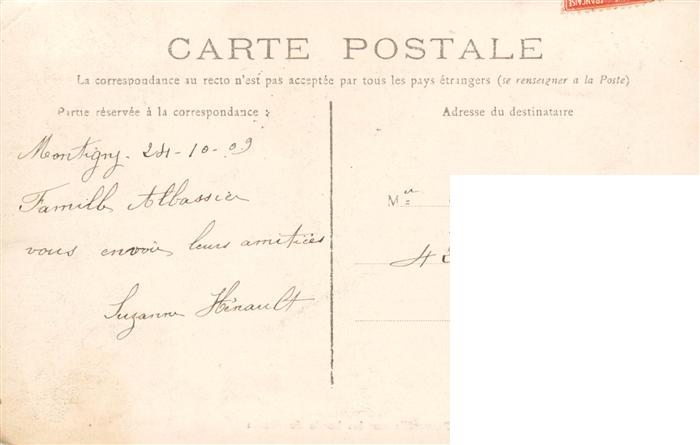 CARTE POSTALE
La correspondance au recto n'est pas acceptée par tous les pays étrangers (se renseigner a la Poste)
Partie réservée à la correspondance :
Montigny. 24-10-09
Famille Albassier
vous envoie leurs amitiées
Suzanne Hénault
Adresse du destinataire
M
4